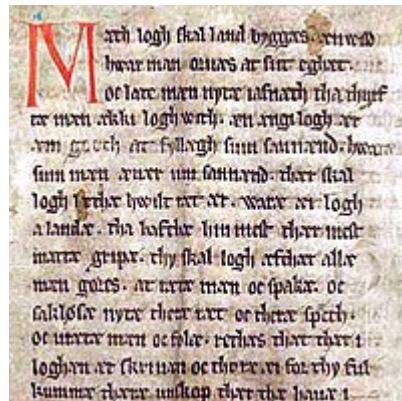 Mæth logh skal land byggæs. æn wild
hwær man oruæs at sit eghæt.
oc latæ mæn nytæ iafnæth tha thurf
tæ mæn ækki logh with. æn ængi logh ær
æm gooth at fyllægh sum sannænd. hwaræ
sum mæn æuær um sannænd. thær skal
logh lethæ hwilt ræt ær. waræ æi logh
a landæ. tha hafthæ hin mest thær mest
mattæ gripæ. thy skal logh æfthær allæ
mæn gøres. at rætæ mæn oc spakæ. oc
sakløsæ nytæ theræ ræt oc theræ speth.
oc urætæ mæn oc folæ. rethæs thæt thær i
loghæn ær skriuan oc thoræ æi for thy ful
kummæ theræ unskop thær the hauæ i